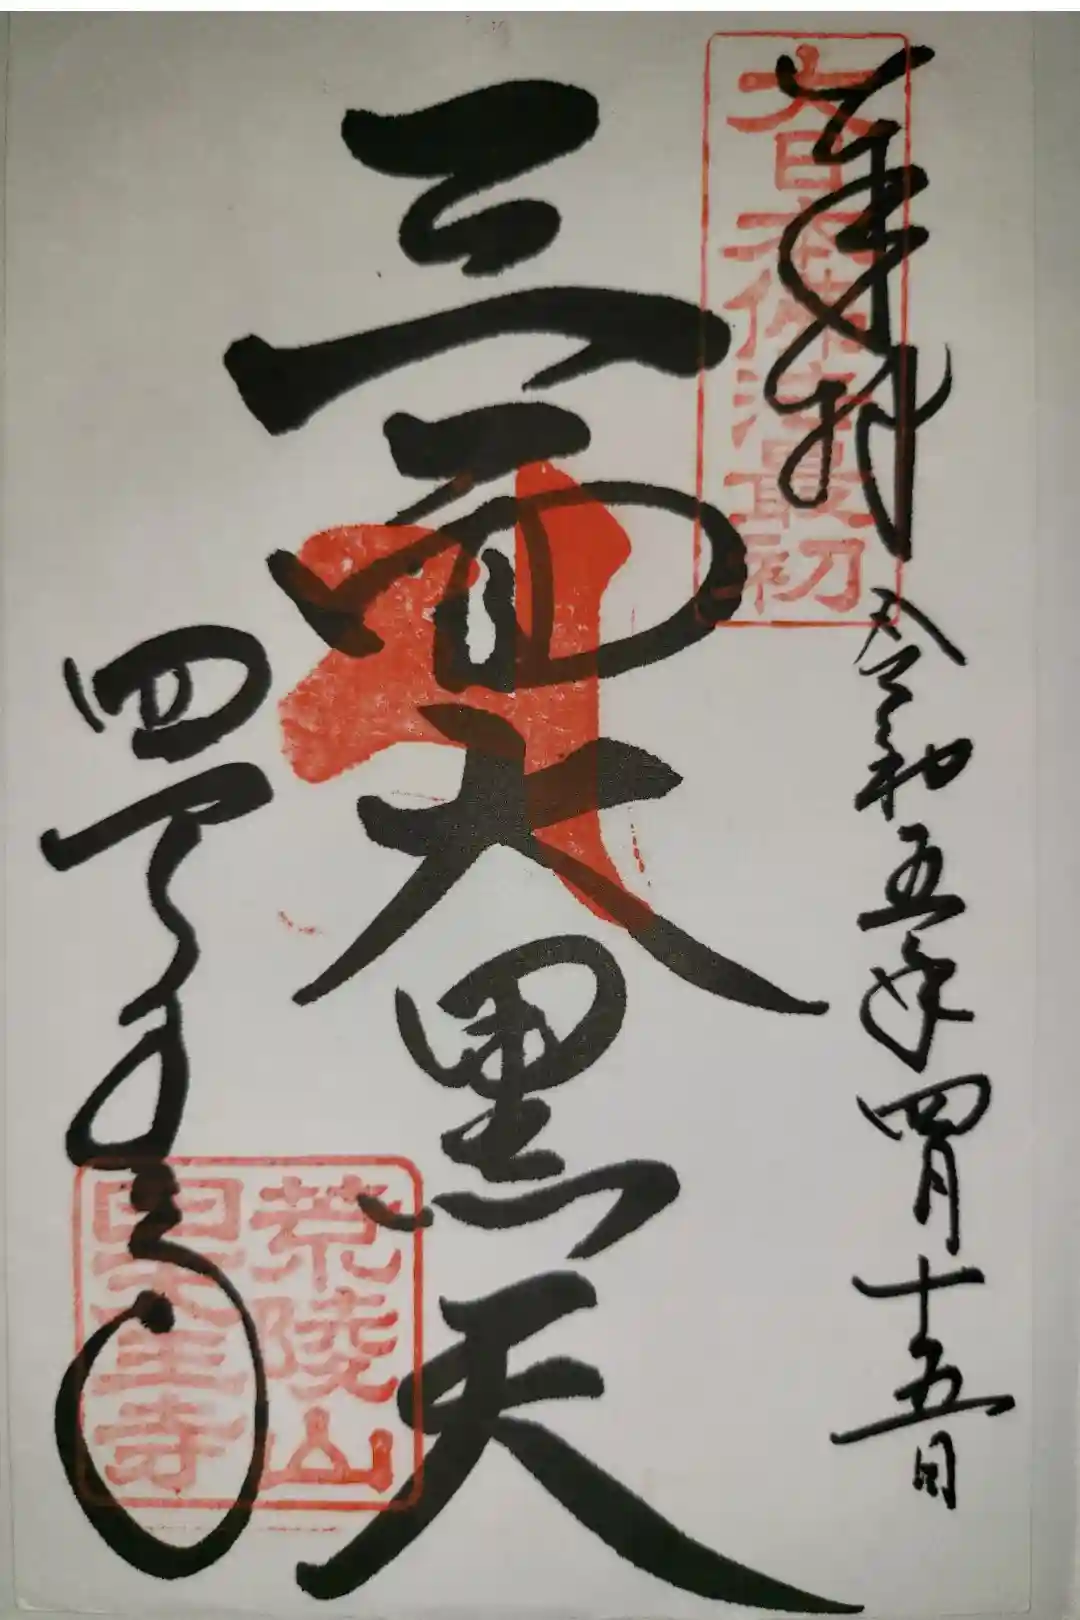 奉拝
大日本佛法最初
令和五年四月十五日
三面大黒天
四天王寺
荒陵山
四天王寺